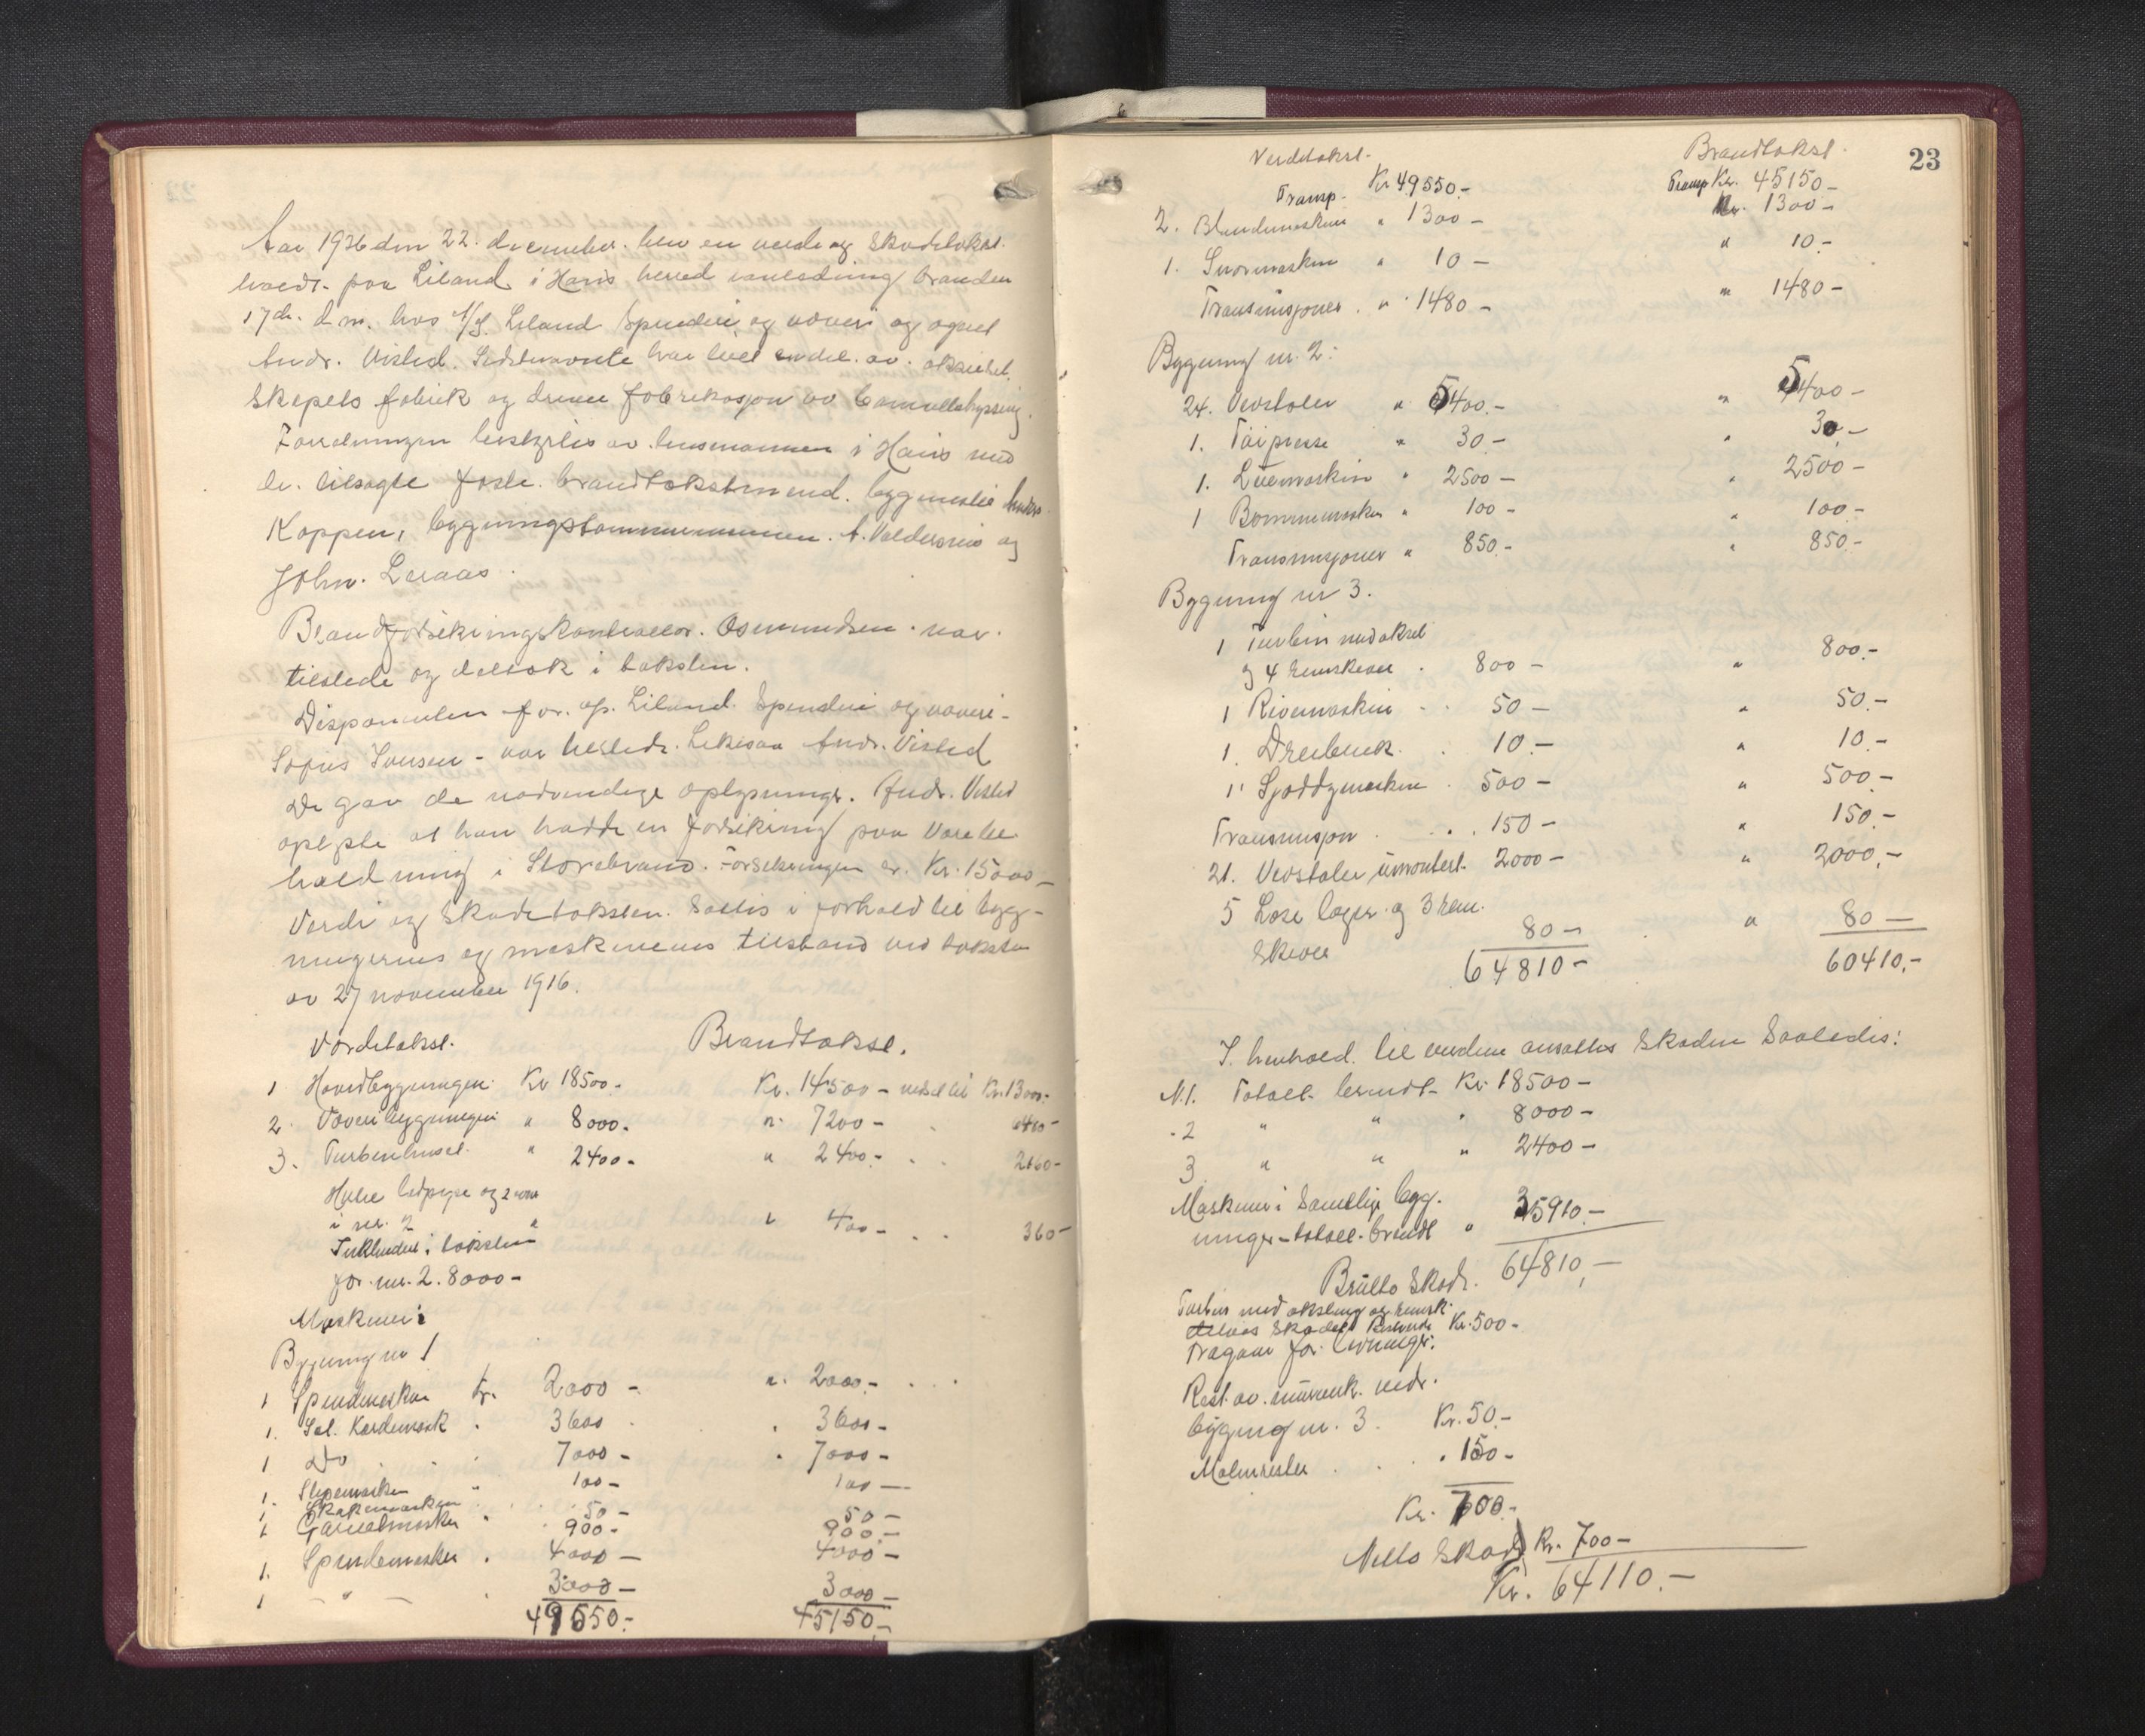 Aar 1926 den 22. december. blev en verdi og Skadetakst.
holdt paa Liland i Haus herred i anledning branden
17de. d. m. hos A/S. Liland Spinderi og væveri og ogsaa
Andr. Visted. Sidstnævnte har leiet endel av aktiesel.
skapets fabrik og driver fabrikasjon av
Forretningen bestyrtes av lensmannen i Haus med
de. tilsagte faste. brandtakstmend. bygmester Anders
Koppen, bygningstømmermannen. A. Valdersnes og
John. Leraas.
Brandforsikringskontrollør. Osmundsen. var.
tilstede og deltok i taksten.
Disponenten for. A/S. Liland. Spinderi og væveri-
Sofus Iversen - var tilstede. Likesaa Andr. Visted
De gav de nødvendige oplysninger. Andr. Visted
oplyste at han hadde en forsikring paa Varebe
holdning i Storebrand. Forsikringen er. Kr. 15000-
Verdi og Skadetaksten. Sættes i forhold til byg-
ningernes og maskinenes tilstand ved taksten
av 27 november 1916.
Værditakst. Brandtakst.
1 Hovedbygningen. Kr 18500.- Kr. 14500- nedsat til Kr. 13000.-
2. Væveribygningen " 8000.- " 7200- 6480-
3. Turbinhuset. " 2400.- " 2400.- 2160-
Hele ledpipe og 2
i nr. 2 " " 400- 360-
Inkluderet i taksten
for nr. 2. 8000-
Maskiner:
Bygning nr 1
1 Spindemaskin Kr. 2000- " 2000.-
1. Sel. Kardemask " 3600 " 3600-
1 Do " 7000- " 7000-
1. Slipemaskin " 100- 100-
1. 50- 50-
1 Garnelmaskin " 900- 900-
1. Spindemaskin " 4000- 4000-
1 - " - 3000- 3000-
49550.- 45150.-
23
Verditakst. Brandtakst.
Transp. Kr 49550.- Transp Kr. 45150-
2. Blandemaskin " 1300- Kr. 1300-
1. Snormaskin " 10- " 10.-
Transmisjoner. " 1480- " 1480-
Bygning nr. 2:
24. Vevstoler " 5400.- " 5400-
1. Tøipresse " 30.- " 30-
1. Luemaskin " 2500- " 2500-
1 Bommemaskin " 100- " 100-
Transmisjoner " 850.- " 850.-
Bygning nr 3.
1 Turbin med aksel
og 4 remskiver 800- " 800.-
1 Rivemaskin 50- " 50.-
1. Dreibenk. 10.- " 10.-
1 Sjoddymaskin 500- " 500-
Transmisjon. 150- " 150.-
21. Vevstoler umontert. 2000- " 2000.-
5 Løse lager og 3 rem.
skiver 80- " 80-
64810- 60410.-
I. henhold til verdien ansættes Skaden Saaledes:
N.1. Totalt brendt- Kr. 18500-
-2 " " " 8000-
3 " " " 2400-
Maskiner i Samtlige byg.
ninger-totalt. brendt " 35910.-
Brutto Skade. 64810.-
Turbin med aksling og remsk.
delvis skadet Restverdi Kr. 500-
Fragaar for levninger.
Rest. av. murverk. ved.
bygning nr. 3. Kr. 50.-
Malmrester " 150-
Kr. 700.-
Netto Skade Kr. 700-
Kr. 64110.-